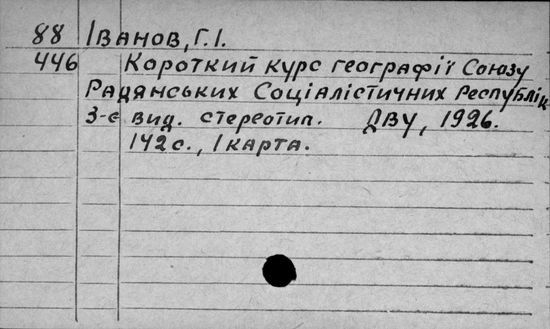 88 Іванов, Г.І.
446 Короткий курс географії Союзу
Радянських Соціалістичних Республік
3-є вид. стереотип. ДВУ, 1926.
142 с., 1 карта.